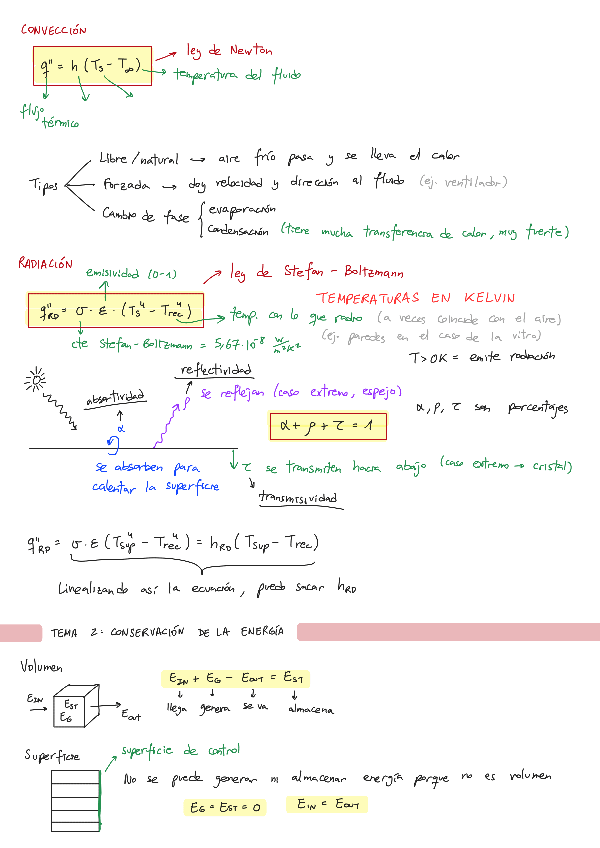 CONVECCIÓN
q" = h (Ts - T∞)
ley de Newton
temperatura del fluido
flujo
térmico
Tipos
Libre/natural → aire frío pasa y se lleva el calor
Forzada → doy velocidad y dirección al fluido (ej. ventilador)
Cambio de fase { evaporación
condensación (tiene mucha transferencia de calor, muy fuerte)
RADIACIÓN
emisividad (0-1)
ley de Stefan - Boltzmann
q"RD = σ · ε · (Ts⁴ - Trec⁴)
TEMPERATURAS EN KELVIN
temp. con lo que radio (a veces coincide con el aire)
(ej. paredes en el caso de la vitro)
cte Stefan-Boltzmann = 5,67·10⁻⁸ W/m²K⁴
T > 0K = emite radiación
reflectividad
absortividad
ρ se reflejan (caso extremo, espejo)
α, ρ, τ son porcentajes
α
α + ρ + τ = 1
se absorben para
calentar la superficie
τ se transmiten hacia abajo (caso extremo → cristal)
transmisividad
q"RD = σ · ε (Tsup⁴ - Trec⁴) = hRD (Tsup - Trec)
Linealizando así la ecuación, puedo sacar hRD
TEMA 2: CONSERVACIÓN DE LA ENERGÍA
Volumen
EIN + EG - EOUT = EST
EIN
EST
EG
EOUT
llega genera se va almacena
Superficie
superficie de control
No se puede generar ni almacenar energía porque no es volumen
EG = EST = 0
EIN = EOUT